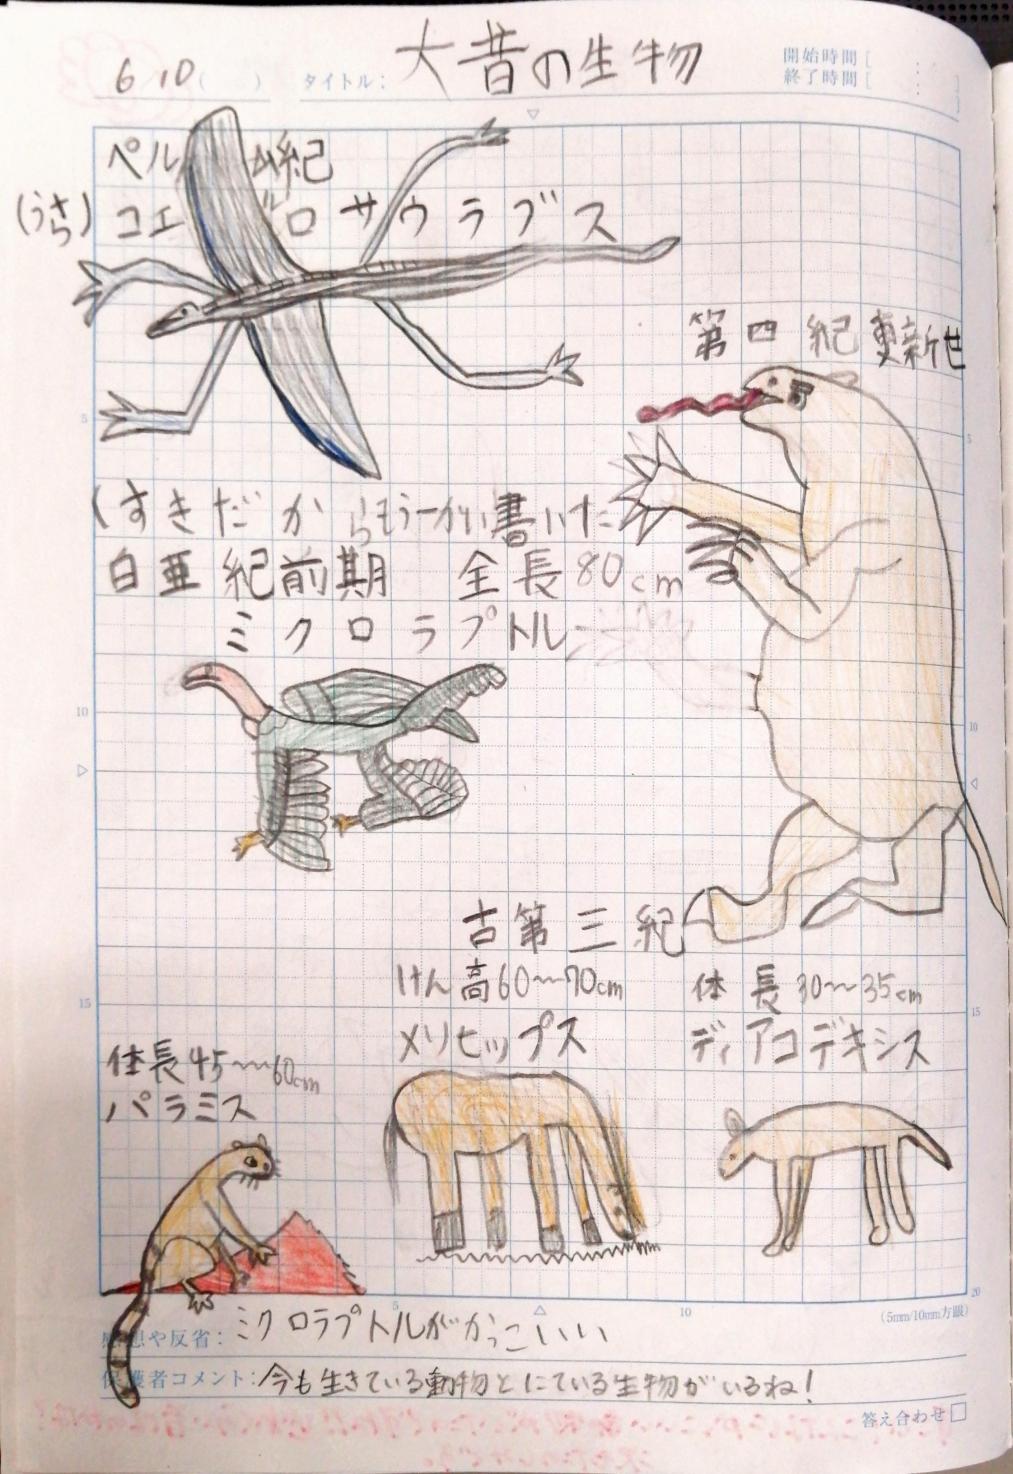 6 10 ( ) タイトル: 大昔の生物 開始時間 [ : ]
終了時間 [ : ]
ペルム紀
(うさら) コエ ロサウラブス
第四紀更新世
(すきだからもう一かい書いた
白亜紀前期 全長80cm
ミクロラプトル
古第三紀
けん高60〜70cm
メリヒップス
体長30〜35cm
ディアコデキシス
体長45〜60cm
パラミス
5
10
15
5
10
15
20
5 10 (5mm/10mm方眼)
感想や反省: ミクロラプトルがかっこいい
保護者コメント: 今も生きている動物とにている生物がいるね!
答え合わせ